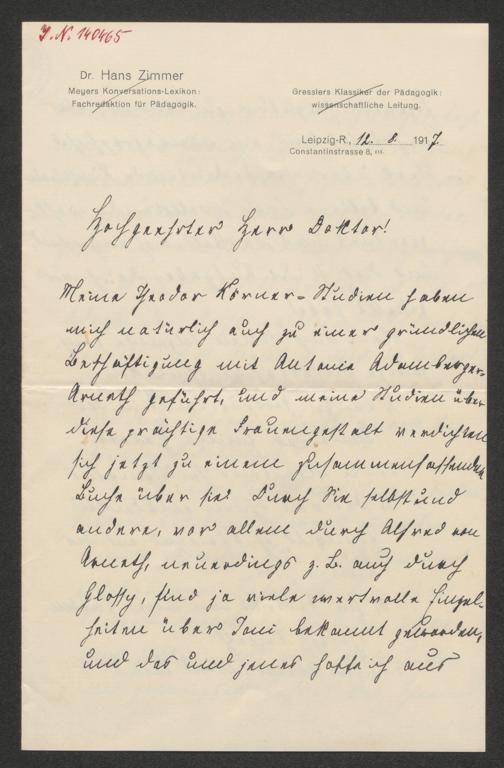 J. N. 140465
Dr. Hans Zimmer
Meyers Konversations-Lexikon:
Fachredaktion für Pädagogik.
Gresslers Klassiker der Pädagogik:
wissenschaftliche Leitung.
Leipzig-R., 12. 8. 1917.
Constantinstrasse 8, III.
Hochgeehrter Herr Doktor!
Meine Theodor Körner-Studien haben
mich natürlich auch zu einer gründlichen
Beschäftigung mit Antonie Adamberger-
Arneth geführt, und meine Studien über
diese prächtige Frauengestalt verdichten
sich jetzt zu einem zusammenfassenden
Buche über sie. Durch Sie selbst und
andere, vor allem durch Alfred von
Arneth, neuerdings z. B. auch durch
Glossy, sind ja viele wertvolle Einzel-
heiten über Toni bekannt geworden,
und das und jenes hoffe ich aus